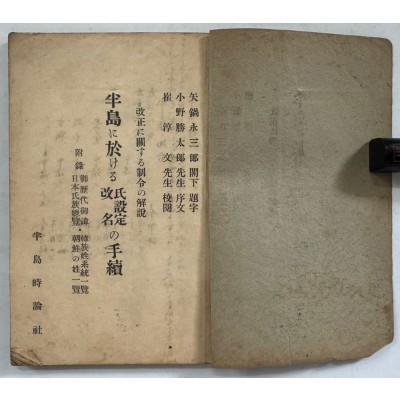 矢鍋永三郎閣下 題字
小野勝太郎先生 序文
崔淳文先生 校閱
改正に關する制令の解說
半島に於ける 氏設定 改名 の手續
附錄 御歷代御諱・韓族姓系統一覽
日本氏族總覽・朝鮮の姓一覽
半島時論社